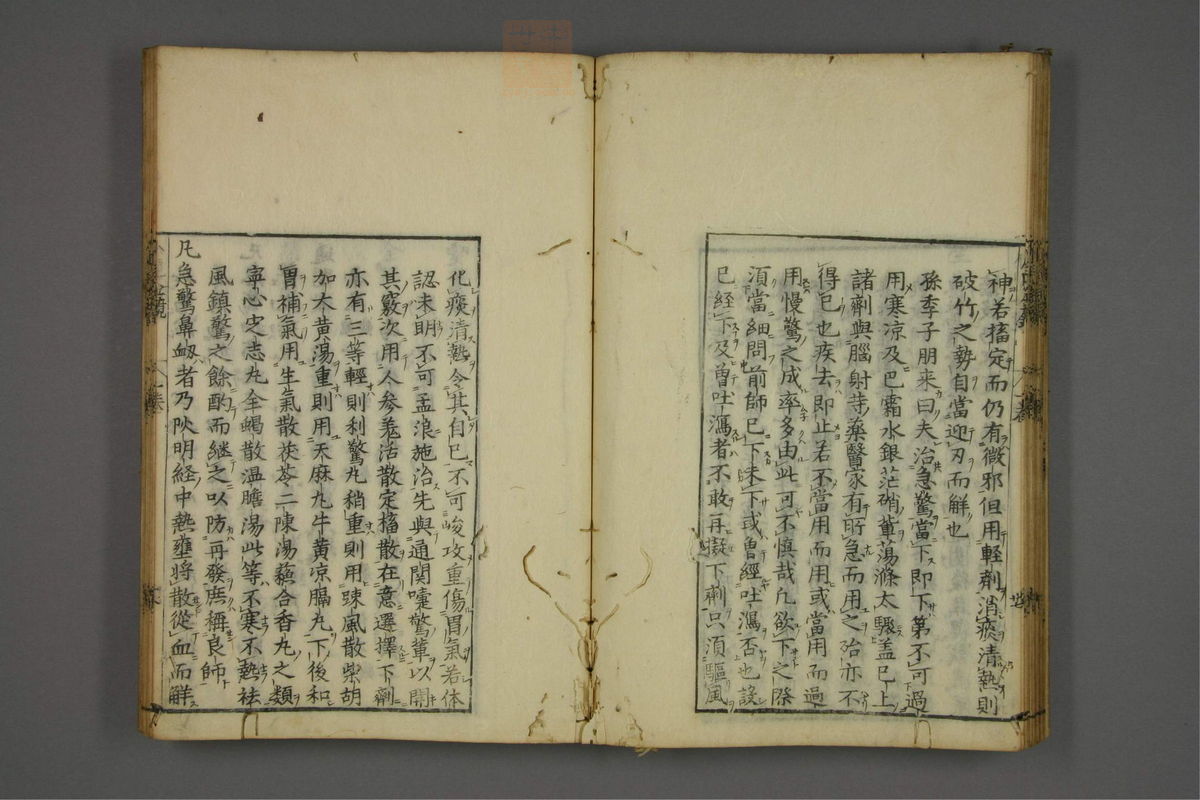 神若搐定而仍有微邪但用軽剤消痰清熱則
破竹之勢自當迎刃而解也
孫季子朋来曰夫治急驚當下即下第不可過
用寒凉及巴霜水銀茫硝葷蕩滌太驟盖巳上
諸劑與腦射寺薬醫家有所急而用之殆亦不
得已也疾去即止若不當用而用或當用而過
用慢驚之成率多由此可不慎哉凡欲下之際
須當細問前師已下未下或曽經吐瀉否也設
已經下及曽吐瀉者不敢再擬下劑只須驅風
化痰清熱令其自已不可峻攻重傷胃氣若体
認未明不可孟浪施治先與通関嚏驚葷以開
其竅次用人參羗活散定搐散在意選擇下劑
亦有三等輕則利驚丸稍重則用踈風散柴胡
加大黄湯重則用天麻丸牛黄凉膈丸下後和
胃補氣用生氣散茯苓二陳湯蘓合香丸之類
寧心定志丸全蝎散温膽湯此等不寒不熱祛
風鎮驚之餘酌而継之以防再發庶稱良師
凡急驚鼻衂者乃陽明経中熱壅將散從血而解